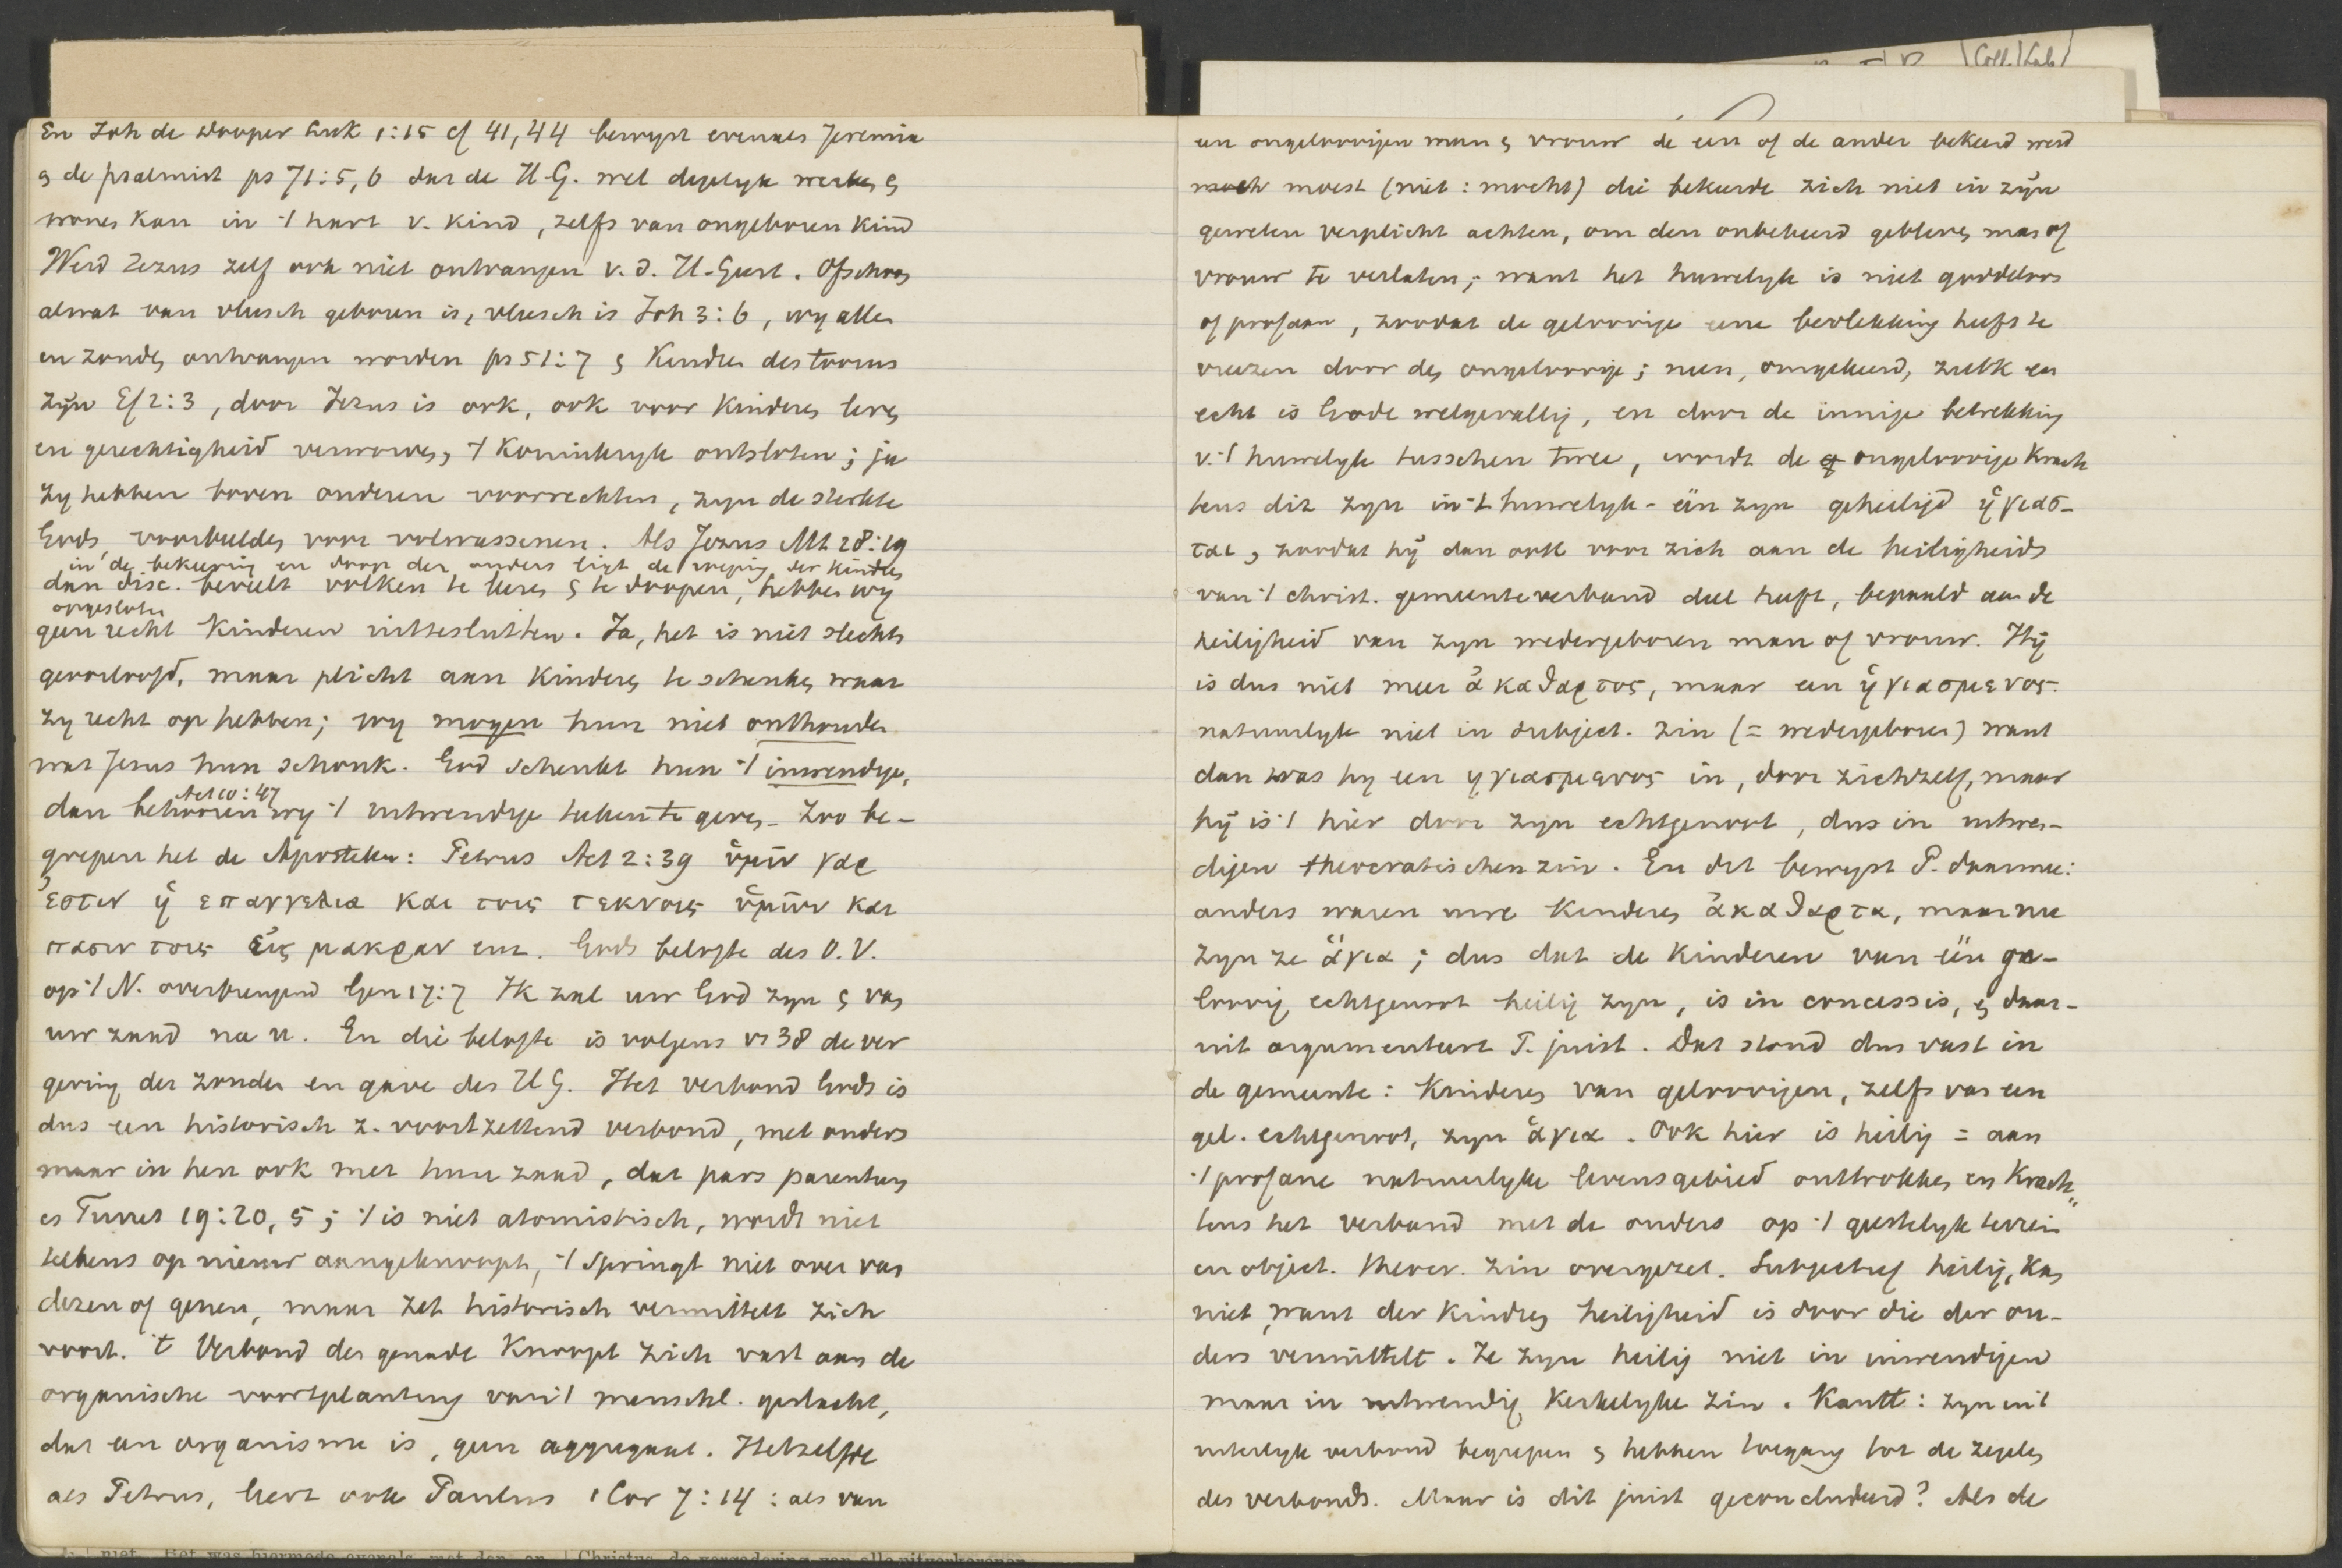 Coll. Lab
En Joh de Dooper Luk 1:15 cf 41,44 bewyst evenals Jeremia
& de psalmist ps 71:5,6 dat de H.G. wel degelyk werken &
wonen kan in 't hart v. kind, zelfs van ongeboren kind
Werd Jezus zelf ook niet ontvangen v.d. H.Geest. Ofschoon
alwat van vleesch geboren is, vleesch is Joh 3:6, wy allen
in zonden ontvangen worden ps 51:7 & Kinderen des toorns
zyn Ef 2:3, door Jezus is ook, ook voor Kinderen leven
en gerechtigheid verworven, 't Koninkryk ontsloten; ja
zy hebben boven anderen voorrechten, zyn de sterkte
Gods, voorbeelden voor volwassenen. Als Jezus Mt 28:19
in de bekeering en doop der ouders ligt de roeping der kinderen
dan disc. beveelt volken te leeren & te doopen, hebben wy
opgesloten
geen recht Kinderen uittesluiten. Ja, het is niet slechts
geoorloofd, maar plicht aan Kinderen te schenken waar
zy recht op hebben; wy mogen hun niet onthouden
wat Jesus hun schonk. God schenkt hun 't inwendige,
Act 10:47
dan behooren wy 't uitwendige teeken te geven. Zoo be-
grepen het de Apostelen: Petrus Act 2:39 ὑμιν γαρ
ἐστιν ἡ επαγγελια και τοις τεκνοις ὑμων και
πασιν τοις εἰς μακραν enz. Gods belofte des O.V.
op 't N. overbrengend Gen 17:7 Ik zal uw God zyn & van
uw zaad na u. En die belofte is volgens vs 38 de ver
geving der zonden en gave des H G. Het verbond Gods is
dus een historisch z. voortzettend verbond, met ouders
maar in hen ook met hun zaad, dat pars parentum
es Turret 19:20, 5; 't is niet atomistisch, wordt niet
telkens op nieuw aangeknoopt, 't springt niet over van
dezen of genen, maar zet historisch vermittelt zich
voort. 't Verbond der genade Knoopt zich vast aan de
organische voortplanting van 't menschl. geslacht,
dat een organisme is, geen aggregaat. Hetzelfde
als Petrus, leert ook Paulus 1 Cor 7:14: als van
een ongeloovigen man & vrouw de een of de ander bekeerd werd
moest (niet: mocht) die bekeerde zich niet in zyn
geweten verplicht achten, om den onbekeerd gebleven man of
vrouw te verlaten; want het huwelyk is niet goddeloos
of profaan, zoodat de geloovige eene bevlekking heeft te
vreezen door den ongeloovige; neen, omgekeerd, zulk een
echt is Gode welgevallig, en door de innige betrekking
v. 't huwelyk tusschen twee, wordt de ongeloovige Krach
tens dit zyn in 't huwelyk - één zyn geheiligd ἡγιασ-
ται, zoodat hy dan ook voor zich aan de heiligheids
van 't christ. gemeenteverband deel heeft, bepaald aan de
heiligheid van zyn wedergeboren man of vrouw. Hy
is dus niet meer ἀκαθαρτος, maar een ἡγιασμενος.
natuurlyk niet in subject. zin (= wedergeboren) want
dan was hy een ηγιασμενος in, door zichzelf, maar
hy is 't hier door zyn echtgenoot, dus in uitwen-
digen theocratischen zin. En dit bewyst P. daarmee:
anders waren uwe Kinderen ἀκαθαρτα, maar nu
zyn ze ἁγια; dus dat de Kinderen van één ge-
loovig echtgenoot heilig zyn, is in concessis, & daar-
uit argumenteert P. juist. Dat stond dus vast in
de gemeente: Kinderen van geloovigen, zelfs van een
gel. echtgenoot, zyn ἁγια. Ook hier is heilig = aan
't profane natuurlyke levensgebied onttrokken en Krach
tens het verband met de ouders op 't geestelyk terrein
in object. theocr. zin overgezet. Subjectief heilig, kan
niet, want der Kinderen heiligheid is door die der ou-
ders vermittelt. Ze zyn heilig niet in inwendigen
maar in uitwendig, Kerkelyke zin. Kantt: zyn in 't
uiterlyk verbond begrepen & hebben toegang tot de zegelen
des verbonds. Maar is dit juist geconcludeerd? Als de